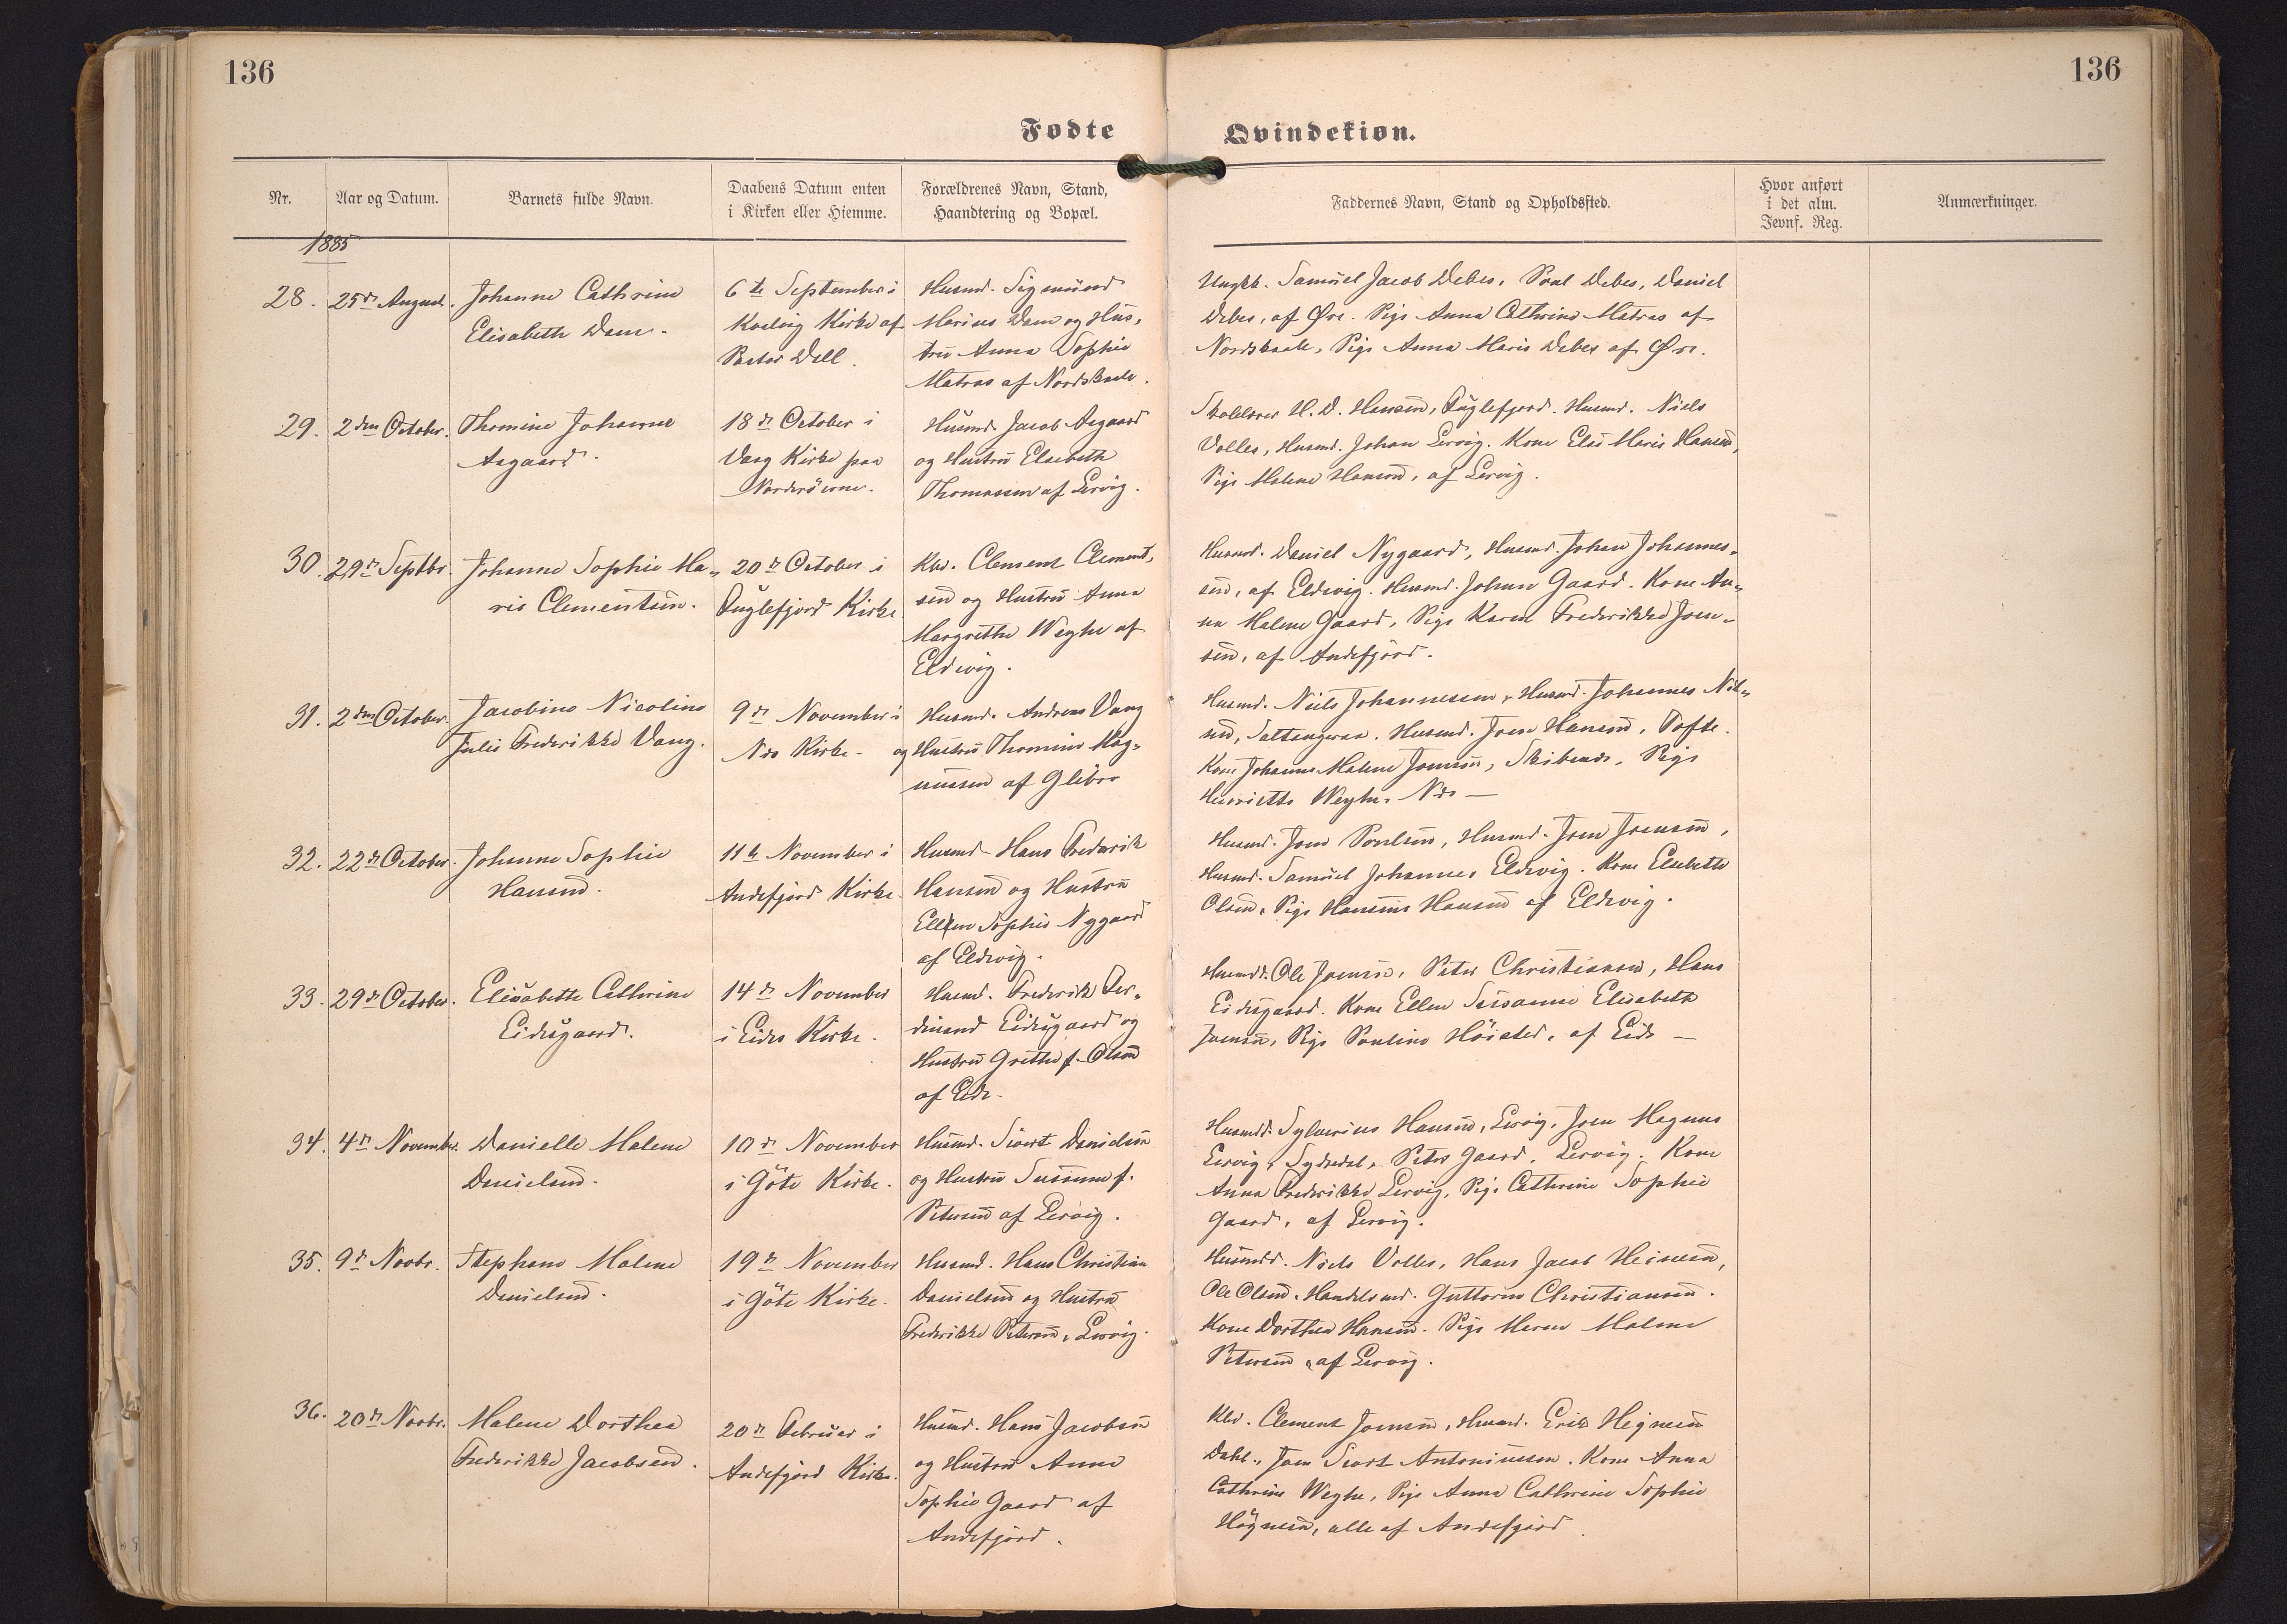 136
136
Fødte
Qvindekiøn.
Nr.
Aar og Datum.
Barnets fulde Navn.
Daabens Datum enten
i Kirken eller Hiemme.
Forældrenes Navn, Stand,
Haandtering og Bopæl.
Faddernes Navn, Stand og Opholdssted.
Hvor anført
i det alm.
Jevnf. Reg.
Anmærkninger.
1885
28.
25de August.
Johanne Cathrine
Elisabeth Dam.
6te September i
Kvalvig Kirke af
Pastor Dell.
Husmd. Sigmund
Marius Dam og Hus-
tru Anna Sophie
Matras af Nordskaale.
Ungk. Samuel Jacob Debes, Poul Debes, Daniel
Debes, af Øre. Pige Anna Cathrine Matras af
Nordskaale, Pige Anna Marie Debes af Øre.
29.
2den October.
Thomine Johanne
Aagaard.
18de October i
Vaag Kirke paa
Norderöerne.
Husmd. Jacob Aagaard
og Hustru Elsebeth
Thomassen af Lervig.
Skolelærer H. D. Hansen, Fuglefjord. Husmd. Niels
Volles, Husmd. Johan Lervig. Kone Else Marie Hansen,
Pige Malene Hansen, af Lervig.
30.
29de Septbr.
Johanne Sophie Ma-
rie Clementsen.
20de October i
Fuglefjord Kirke
Kbd. Clement Clement-
sen og Hustru Anna
Margrethe Weyhe af
Eldevig.
Husmd. Daniel Nygaard, Husmd. Johan Johannes-
sen, af Eldevig. Husmd. Johan Gaard. Kone An-
na Malene Gaard, Pige Karen Frederikke Joen-
sen, af Andefjord.
31.
2den October.
Jacobine Nicoline
Julie Frederikke Vang.
9de November i
Næs Kirke.
Husmd. Andreas Vang
og Hustru Thomine Mag-
nussen af Glibre
Husmd. Niels Johannesen, Husmd. Johannes Niel-
sen, Saltangeraa. Husmd. Joen Hansen, Tofte.
Kone Johanne Malene Joensen, Skibenæs, Pige
Henriette Weyhe, Næs —
32.
22de October.
Johanne Sophie
Hansen.
11te November i
Andefjord Kirke.
Husmd. Hans Frederik
Hansen og Hustru
Ellen Sophie Nygaard
af Eldevig.
Husmd. Joen Poulsen, Husmd. Joen Joensen,
Husmd. Samuel Johannes Eldevig. Kone Elsebeth
Olsen, Pige Hansine Hansen af Eldevig.
33.
29de October.
Elisabeth Cathrine
Eidesgaard.
14de November
i Eides Kirke.
Husmd. Frederik Fer-
dinand Eidesgaard og
Hustru Grethe f. Olsen
af Eide.
Husmdd. Ole Joensen, Peter Christiansen, Hans
Eidesgaard. Kone Ellen Susanne Elisabeth
Joensen, Pige Pouline Höisted, af Eide —
34.
4de November.
Danielle Malene
Danielsen.
10de November
i Göte Kirke.
Husmd. Sivert Danielsen
og Hustru Susanne f.
Petersen af Lervig.
Husmdd. Sylverius Hansen, Lervig, Joen Magnus
Lervig, Sydredal, Peter Gaard, Lervig. Kone
Anna Frederikke Lervig, Pige Cathrine Sophie
Gaard, af Lervig.
35.
9de Novbr.
Stephane Malene
Danielsen.
19de November
i Göte Kirke.
Husmd. Hans Christian
Danielsen og Hustru
Frederikke Petersen, Lervig.
Husmdd. Niels Volles, Hans Jacob Heinesen,
Ole Olsen. Handelsmd. Guttorm Christiansen.
Kone Dorthea Hansen. Pige Maren Malene
Petersen, af Lervig.
36.
20de Novbr.
Malene Dorthea
Frederikke Jacobsen.
20de Februar i
Andefjord Kirke.
Husmd. Hans Jacobsen
og Hustru Anne
Sophie Gaard af
Andefjord.
Kbd. Clement Joensen, Husmd. Erik Hognesen
Dahl, Joen Sivert Antoniussen. Kone Anna
Cathrine Weyhe, Pige Anna Cathrine Sophie
Högnesen, alle af Andefjord.